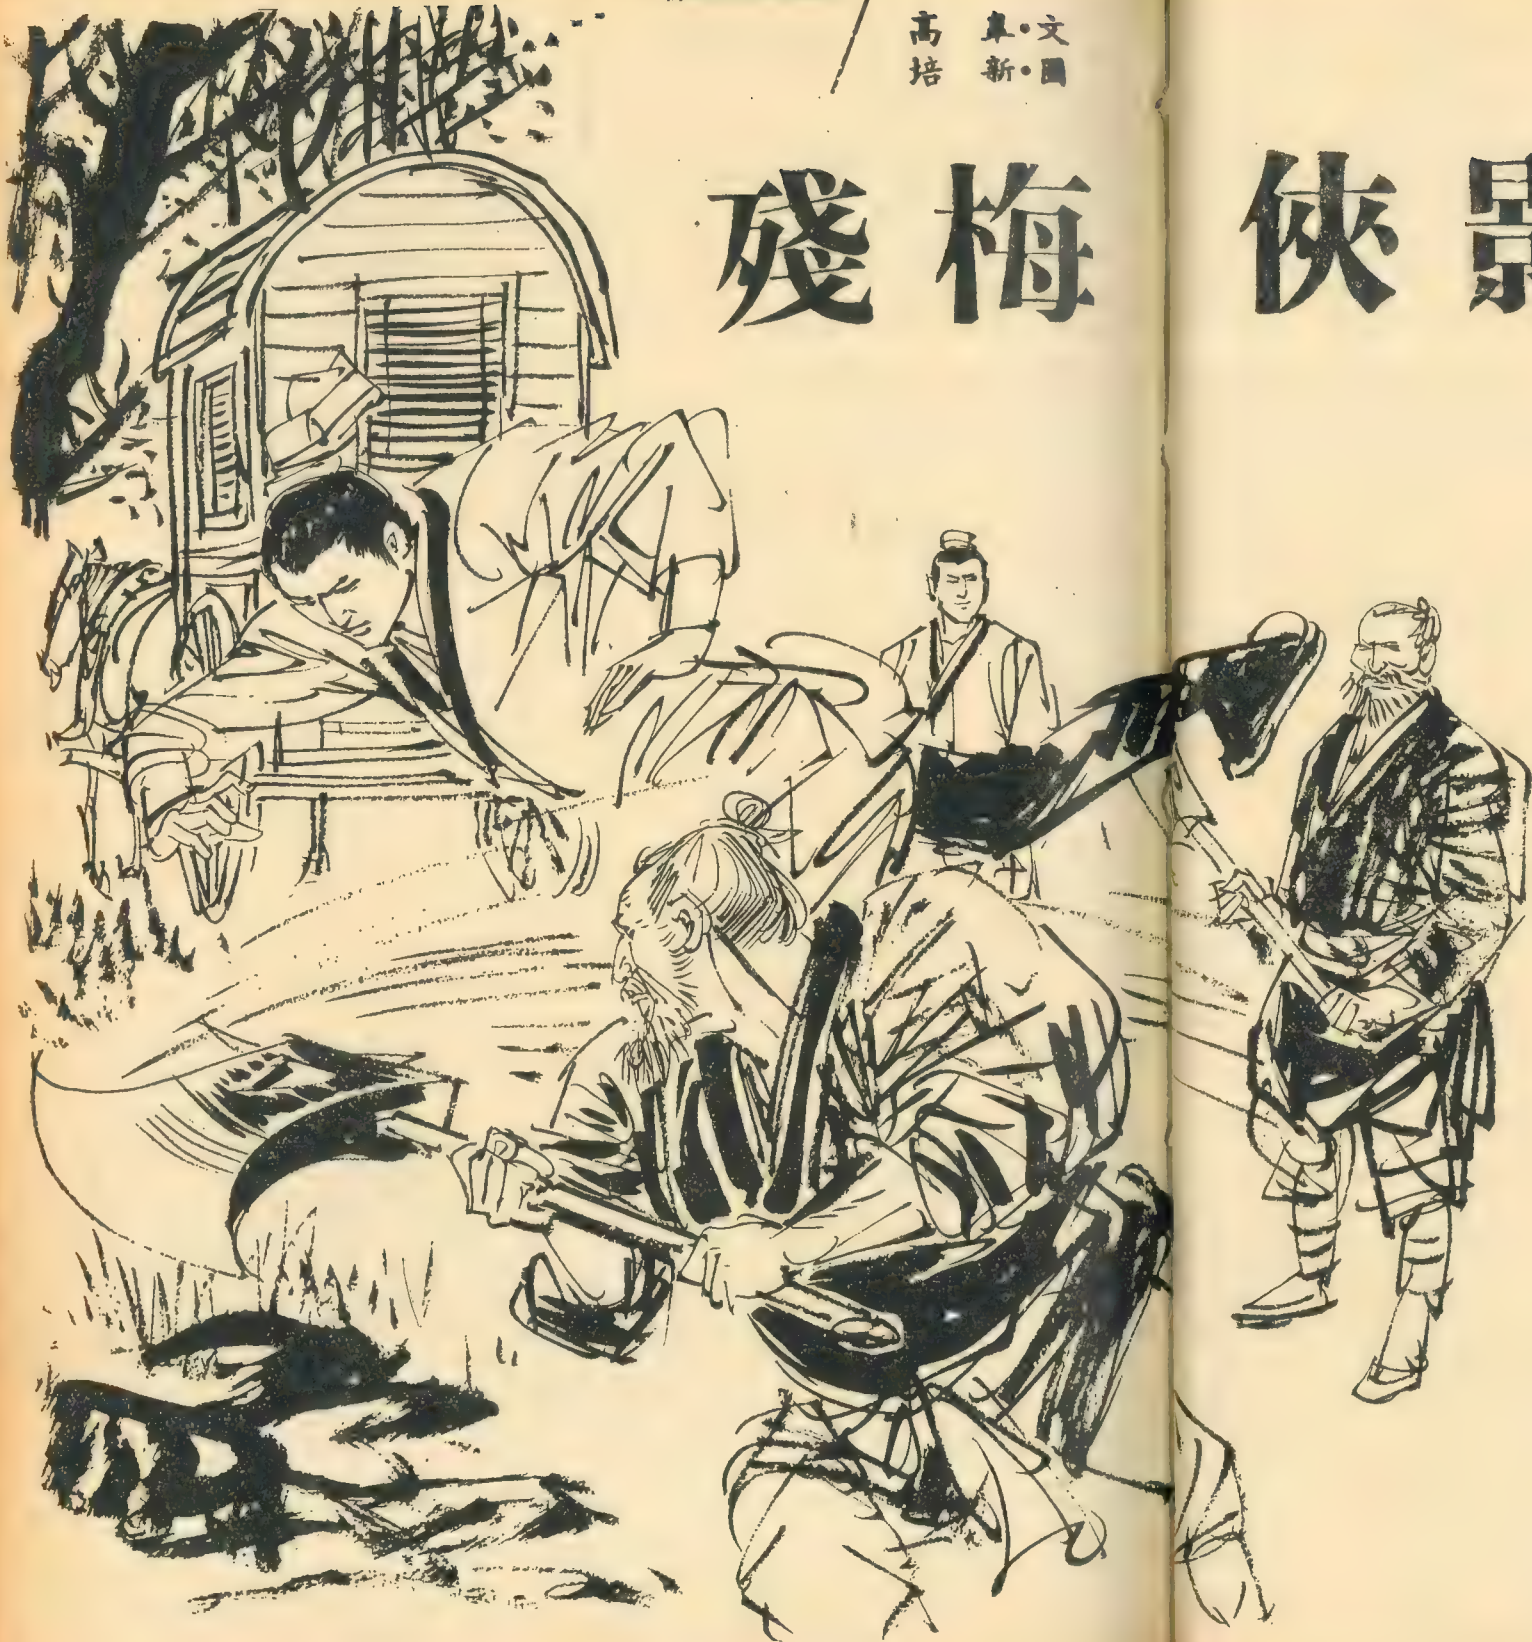 高 皋•文
培 新•圖
殘梅俠影